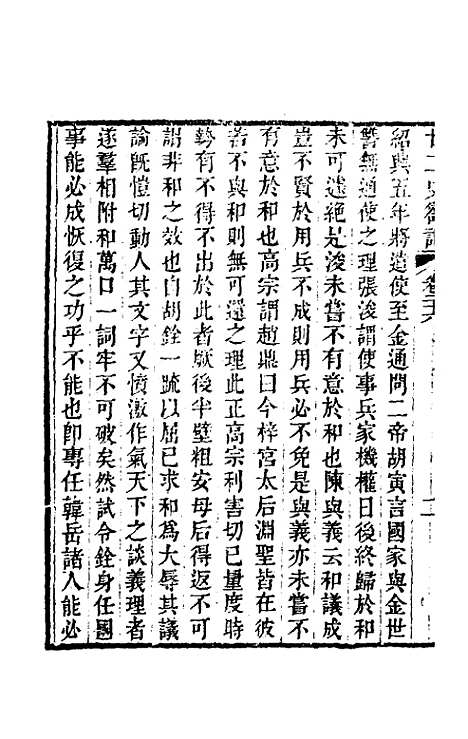 廿二史劄記 卷二十六 二
紹興五年將遣使至金通問二帝胡寅言國家與金世
讐無通使之理張浚謂使事兵家機權日後終歸於和
未可遽絕是浚未嘗不有意於和也陳與義云和議成
豈不賢於用兵不成則用兵必不免是與義亦未嘗不
有意於和也高宗謂趙鼎曰今梓宮太后淵聖皆在彼
若不與和則無可還之理此正高宗利害切已量度時
勢有不得不出於此者厥後半壁粗安母后得返不可
謂非和之效也自胡銓一疏以屈已求和爲大辱其議
論旣愷切動人其文字又憤激作氣天下之談義理者
遂羣相附和萬口一詞牢不可破矣然試令銓身任國
事能必成恢復之功乎不能也卽專任韓岳諸人能必